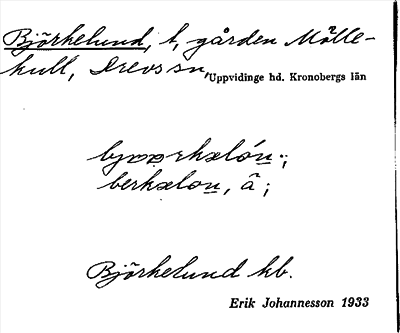 Björkelund, t, gården Mölle-
kull, Drevs sn, Uppvidinge hd. Kronobergs län
berkælon, â;
Björkelund kb.
Erik Johannesson 1933